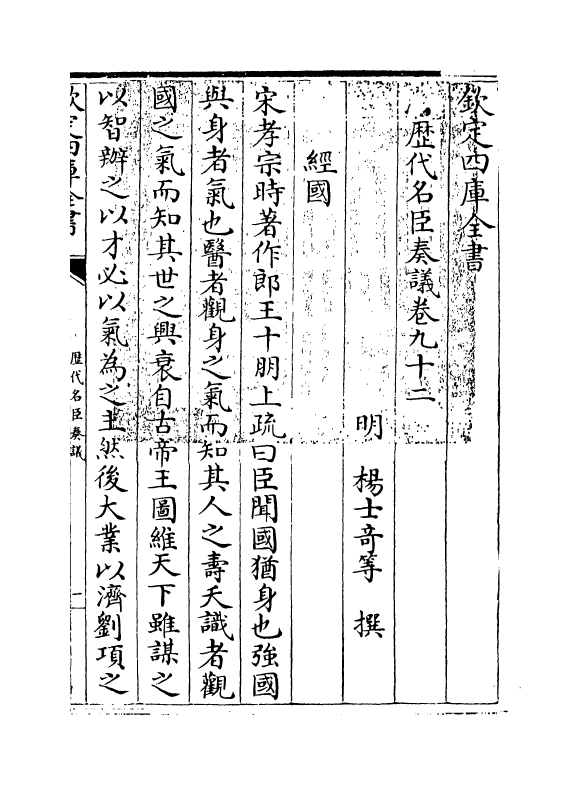 欽定四庫全書
歴代名臣奏議卷九十二
明 楊士竒等 撰
經國
宋孝宗時著作郎王十朋上疏曰臣聞國猶身也強國
與身者氣也醫者觀身之氣而知其人之壽夭識者觀
國之氣而知其世之興衰自古帝王圖維天下雖謀之
以智辦之以才必以氣為之主然後大業以濟劉項之
欽定四庫全書
歴代名臣奏議
一